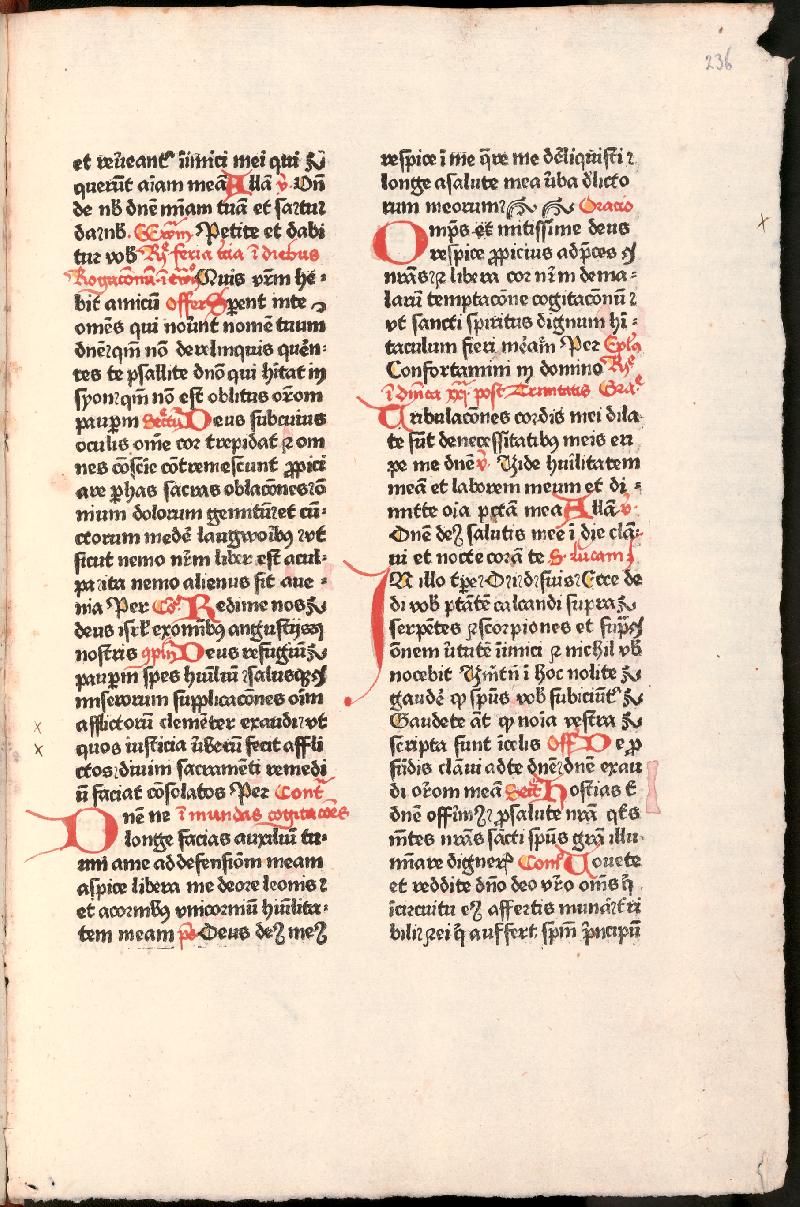 236
et reueant᷑ iīmici mei qui ⁊
querūt aīam meā Allā v̄. Oñ
de nb̄ dnēm mīam tuā et sa tur
da nb̄. Ewm̄ Petite et dabi
tur vob̄ Ry̅ feria tcia ī diebus
Rogacōnū ī Quis vr̄m hē⸗
bit amicū Offer Sperēt inte
omēs qui nouīnt nomē tuum
dnē qm̄ nō derelinquis quēn⸗
tes te psallite dnō qui hītat in
syon qm̄ nō est oblitus or̄om
paupm̄ Secrtū Deus sub cuius
oculis omē cor trepidat ⁊ om
nes cōscīe cōtremescunt ꝓpici
are ꝑ has sacras oblacōnes ō
nium dolorum gemitū et cū⸗
ctorum medē languorib; vt
sicut nemo nr̄m liber est a cul⸗
pa ita nemo alienus sit a ue⸗
nia Per Cō Redime nos
deus isrl̄ ex omīb; angustijs
nostris ꝯpln̄ Deus refugiū
paupm̄ spes huīliū ⁊ salus
miserorum supplicacōnes oīm
afflictorū clemēter exaudi vt
quos iusticia v̄berū fecit affli
ctos diuini sacramēti remedi
ū faciat cōsolatos Per Cont̄
Dnē ne ī mundas cogitacōēs
longe facias auxiliū tu⸗
um a me ad defensiōm meam
aspice libera me de ore leonis ⁊
et a cornib; vnicornīū huīlita⸗
tem meam ps̄ Deus deꝰ meꝰ
respice ī me q̄re me dēliquisti ⁊
longe a salute mea v̄ba dlicto
rum meorum Oracio
Omps̄ et mitissime deus
respice ꝓpicius ad p̄ces
nr̄as ⁊ libera cor nr̄m de ma⸗
larū temptacōne cogitacōnū ⁊
vt sancti spiritus dignum hī⸗
taculum fieri meām̄ Per Epl̄a
Confortamini in domino Ry̅
ī dn̄ica xxj post Trinitatis Gra
Tribulacōnes cordis mei dila
te sūt de necessitatib; meis eri
pe me dnē v̄. Vide huīlitatem
meā et laborem meum et di⸗
mitte oīa pctā mea Allā v̄.
Dnē deꝰ salutis mee ī die clā⸗
ui et nocte corā te S. Lucam
In illo tp̄e Dr̄ dr̄ suis Ecce de
di vob̄ ptātē calcandi supra
serpētes ⁊ scorpiones et sup
ōnem v̄tutē iīmici ⁊ nichil vb̄
nocebit Vm̄tn̄ ī hoc nolite
gaudē qꝫ spūs vob̄ subiciūt᷑
Gaudete āt qꝫ noīa vestra
scripta sunt ī celis Off De ꝓ
fūdis clāui ad te dnē dnē exau
di or̄om meā Secrt̄ Hostias t̄
dnē offīm; ꝓ salute nrā q̄ts
mētes nrās sācti spūs grā illu⸗
mīare digner᷑ Com̄ Uouete
et reddite dn̄o deo vr̄o omīs q̄
ī circuitu eꝰ affertis munā t̄ri
bili ⁊ ei q̄ auffert spm̄ p̄ncipū